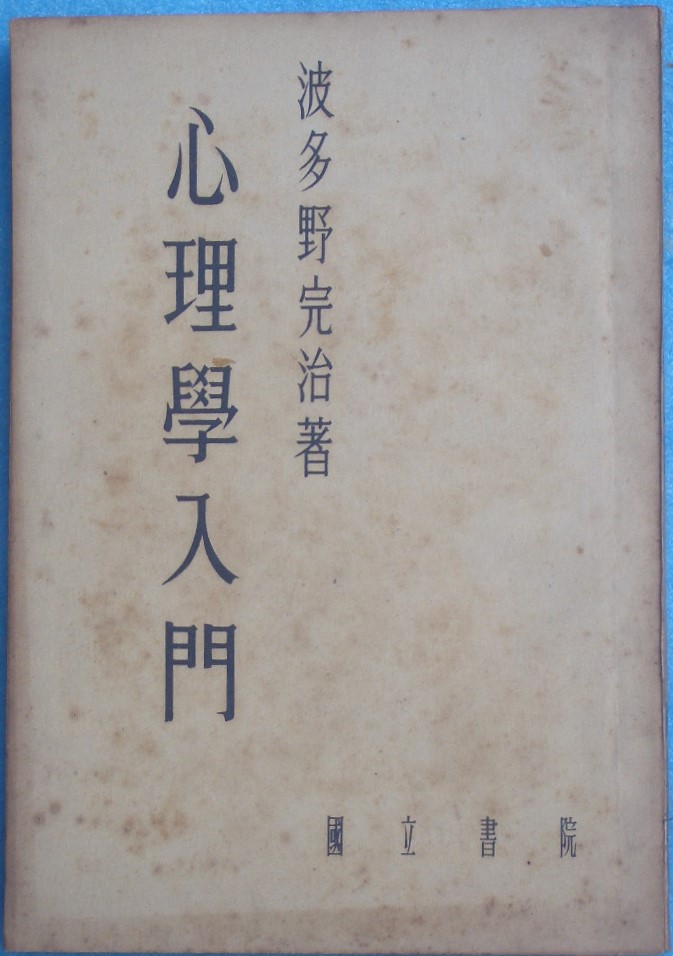 波多野完治著
心理學入門
國立書院